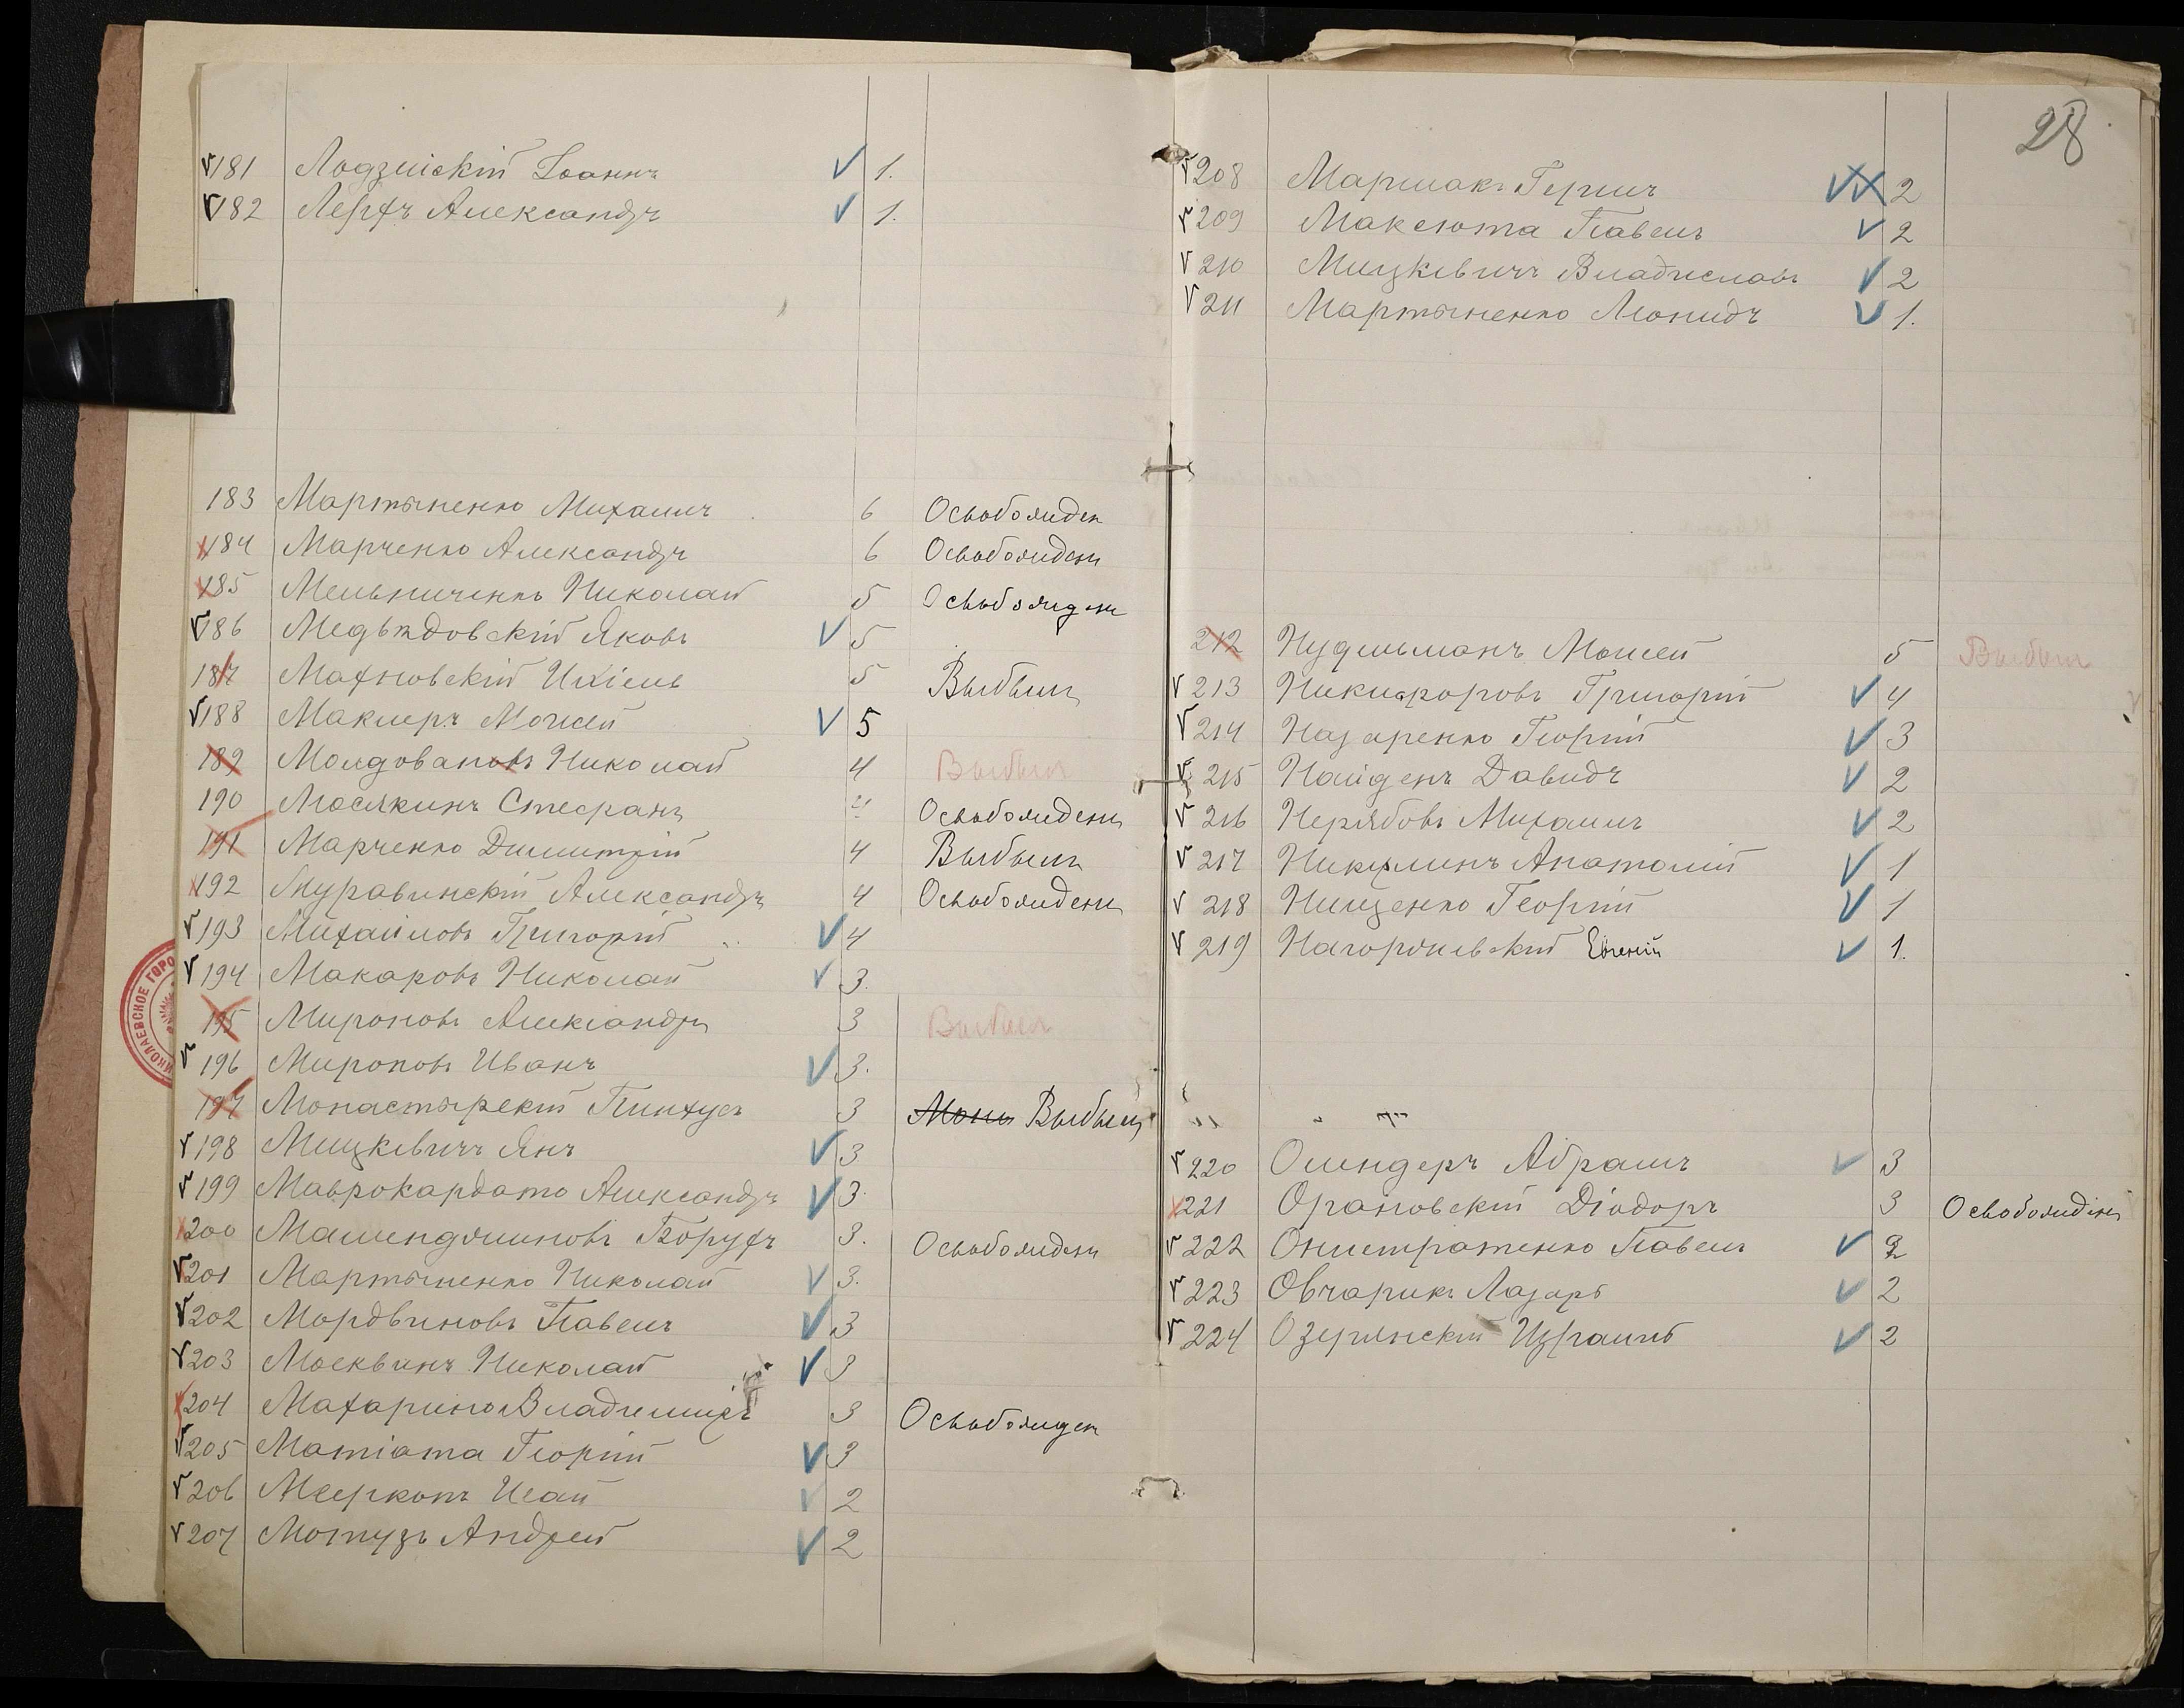 181 Лодзинскій Іоаннъ 1.
182 Лерхъ Александръ 1.
183 Мартыненко Михаилъ 6 Освобожден
184 Марченко Александръ 6 Освобожденъ
185 Мельниченко Николай 5 Освобожденъ
186 Медвѣдовскій Яковъ 5
187 Махновскій Ихіель 5 Выбылъ
188 Маклеръ Моисей 5
189 Молдовановъ Николай 4 Выбылъ
190 Мосякинъ Стефанъ 4 Освобожденъ
191 Марченко Димитрій 4 Выбылъ
192 Муравинскій Александръ 4 Освобожденъ
193 Михайловъ Григорій 4
194 Макаровъ Николай 3.
195 Мироновъ Александръ 3 Выбылъ
196 Мироновъ Иванъ 3.
197 Монастырскій Пинхусъ 3 Выбылъ
198 Мицкевичъ Янъ 3
199 Маврокардато Александръ 3.
200 Машендлишовъ Борухъ 3. Освобожденъ
201 Мартыненко Николай 3.
202 Мордвиновъ Павелъ 3
203 Москвинъ Николай 3
204 Махарино Владимиръ 3 Освобожден
205 Матіата Георгій 3
206 Мееркопъ Исай 2
207 Мотузъ Андрей 2
28
208 Маршакъ Гершъ 2
209 Максюта Павелъ 2
210 Мицкевичъ Владиславъ 2
211 Мартыненко Леонидъ 1.
212 Нудельманъ Моисей 5 Выбылъ
213 Никифоровъ Григорій 4
214 Назаренко Георгій 3
215 Найденъ Давидъ 2
216 Нерябовъ Михаилъ 2
217 Никулинъ Анатолій 1
218 Нищенко Георгій 1
219 Нагорзчевскій Евгеній 1.
220 Ошендеръ Абрамъ 3
221 Орановскій Діодоръ 3 Освобожденъ
222 Онистратенко Павелъ 2
223 Овчарикъ Лазарь 2
224 Озерянскій Израиль 2